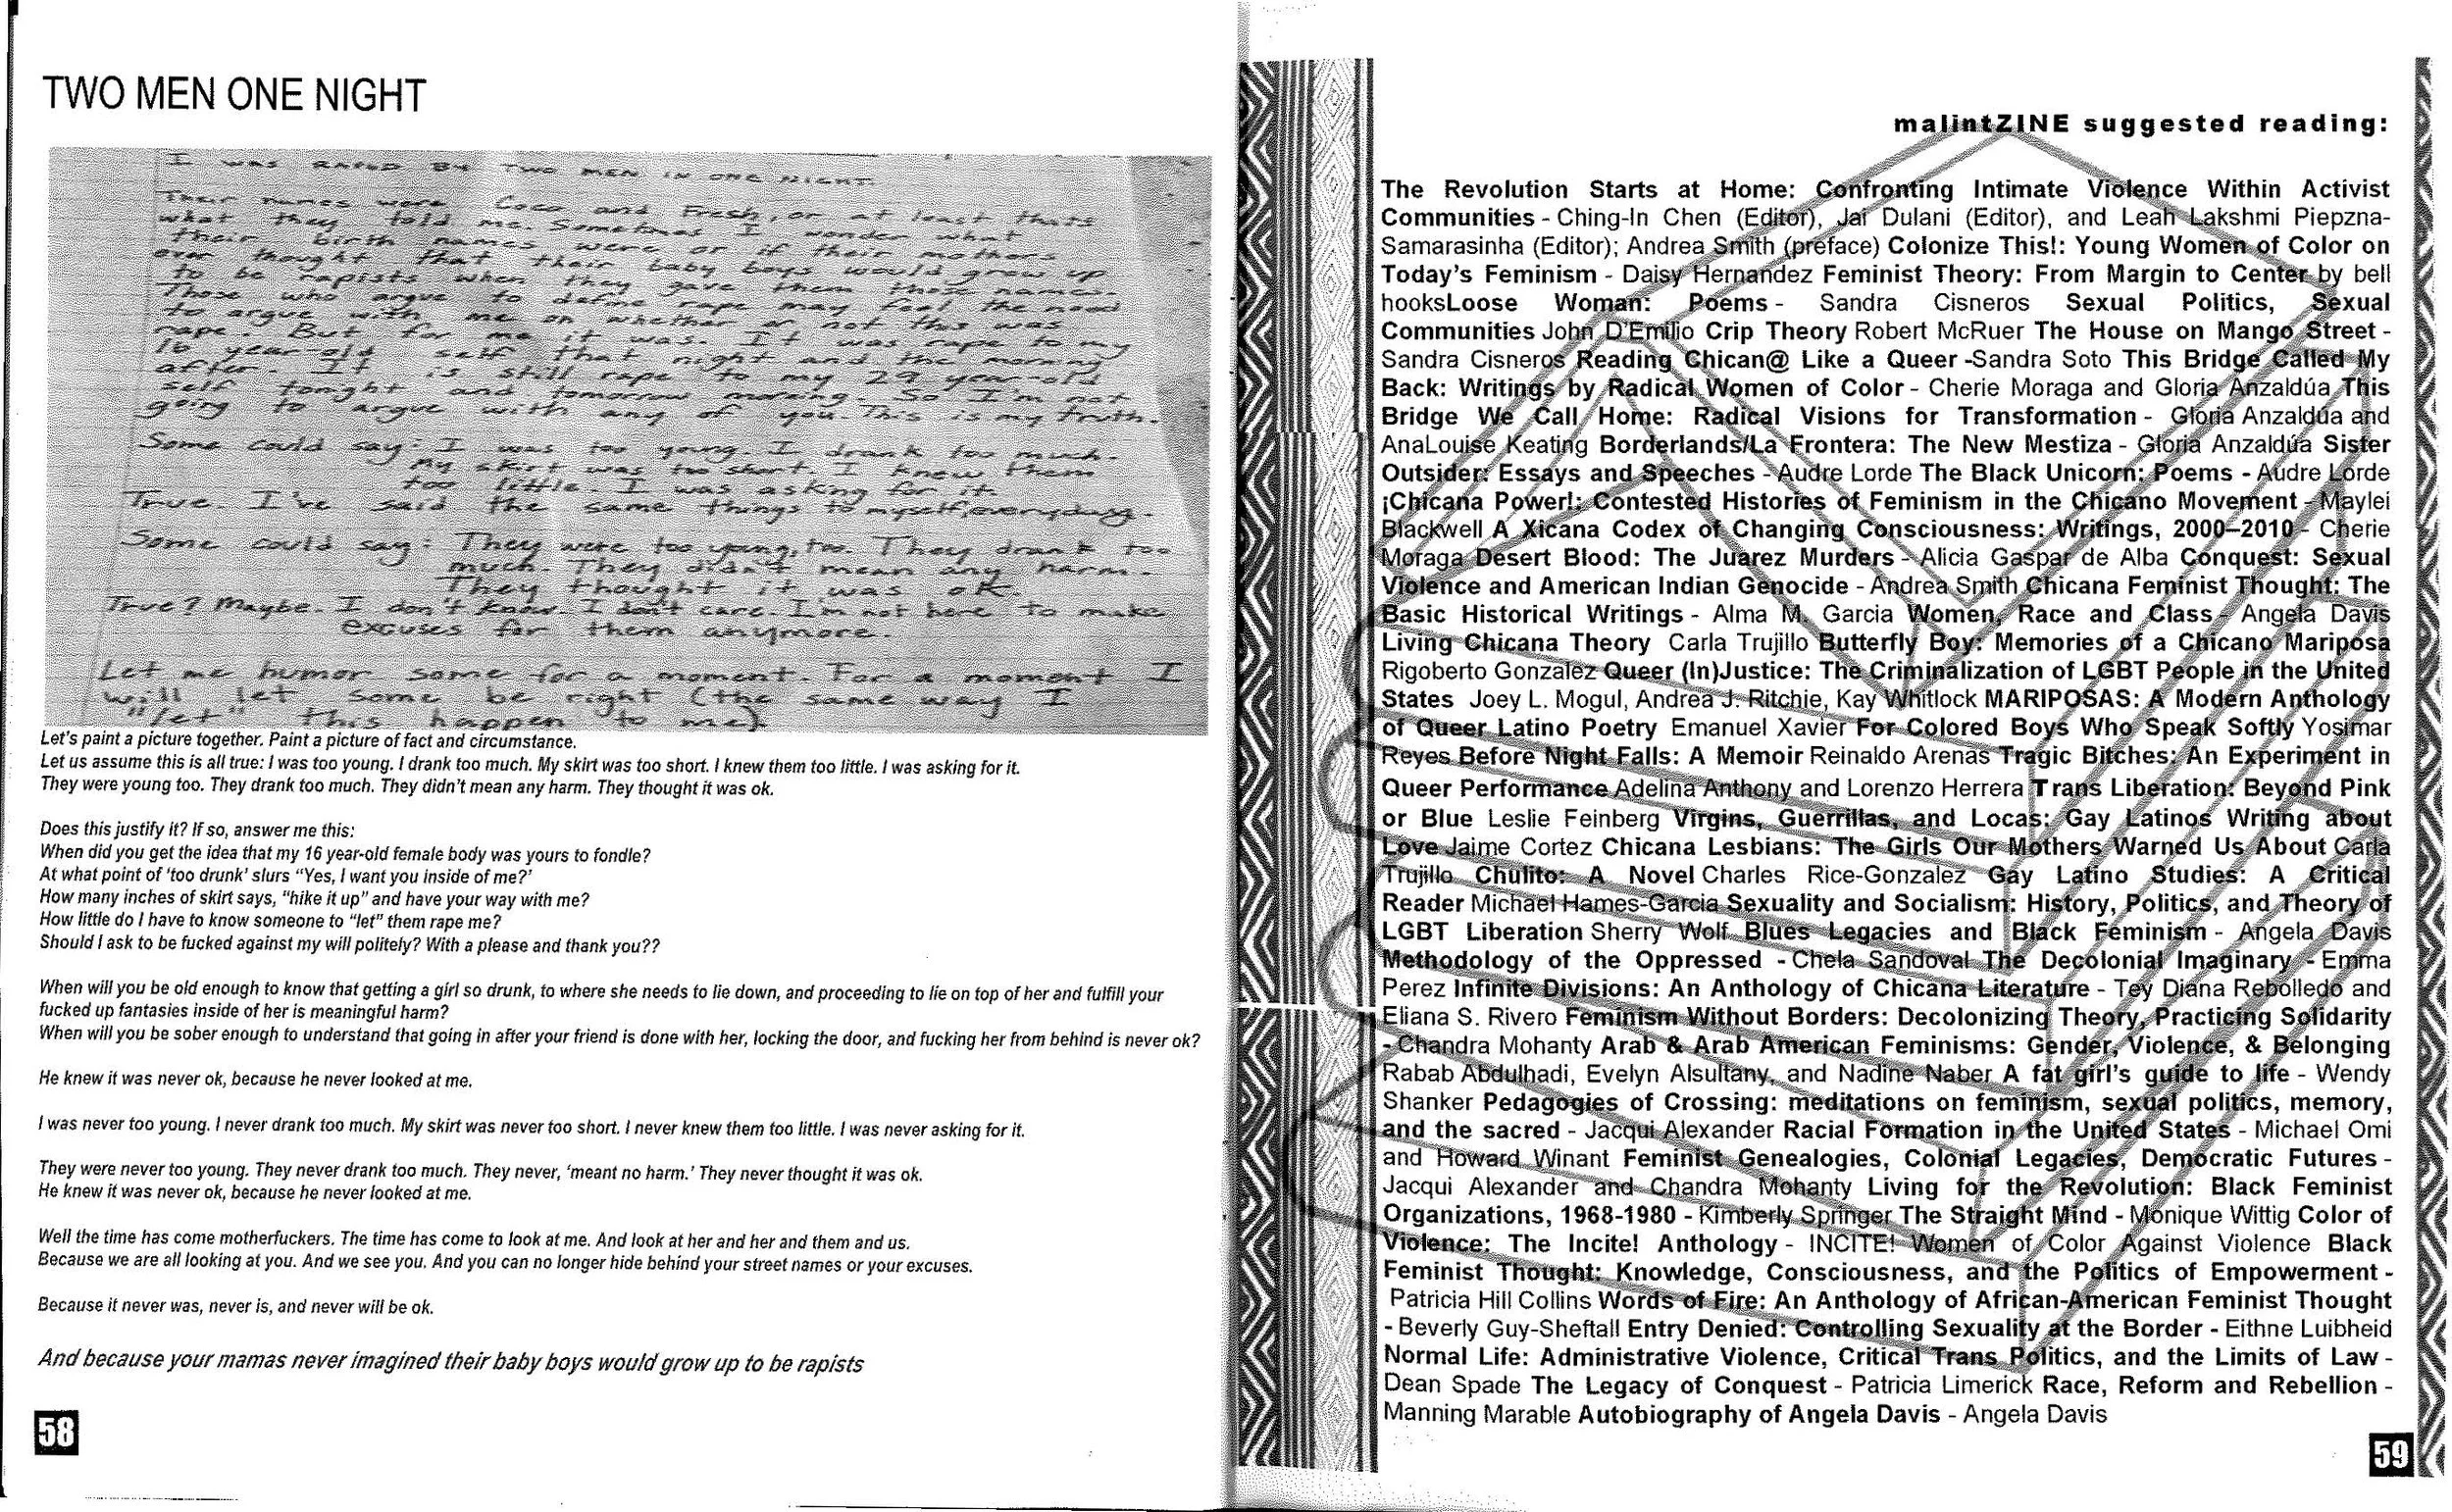 TWO MEN ONE NIGHT
I WAS RAPED BY TWO MEN IN ONE NIGHT.
Their names were Coco and Fresh, or at least thats
what they told me. Sometimes I wonder what
their birth names were or if their mothers
ever thought that their baby boys would grow up
to be rapists when they gave them those names.
Those who argue to define rape may feel the need
to argue with me on whether or not this was
rape. But for me it was. It was rape to my
16 year-old self that night and the morning
after. It is still rape to my 29 year-old
self tonight and tomorrow morning. So I'm not
going to argue with any of you. This is my truth.
Some could say: I was too young. I drank too much.
My skirt was too short. I knew them
too little. I was asking for it.
True. I've said the same things to myself, everydamn.
Some could say: They were too young, too. They drank too
much. They didn't mean any harm.
They thought it was ok.
True? Maybe. I don't know. I don't care. I'm not here to make
excuses for them anymore.
Let me humor some for a moment. For a moment I
will let some be right (the same way I
"let" this happen to me)
Let's paint a picture together. Paint a picture of fact and circumstance.
Let us assume this is all true: I was too young. I drank too much. My skirt was too short. I knew them too little. I was asking for it.
They were young too. They drank too much. They didn't mean any harm. They thought it was ok.
Does this justify it? If so, answer me this:
When did you get the idea that my 16 year-old female body was yours to fondle?
At what point of 'too drunk' slurs "Yes, I want you inside of me?'
How many inches of skirt says, "hike it up" and have your way with me?
How little do I have to know someone to "let" them rape me?
Should I ask to be fucked against my will politely? With a please and thank you??
When will you be old enough to know that getting a girl so drunk, to where she needs to lie down, and proceeding to lie on top of her and fulfill your
fucked up fantasies inside of her is meaningful harm?
When will you be sober enough to understand that going in after your friend is done with her, locking the door, and fucking her from behind is never ok?
He knew it was never ok, because he never looked at me.
I was never too young. I never drank too much. My skirt was never too short. I never knew them too little. I was never asking for it.
They were never too young. They never drank too much. They never, 'meant no harm.' They never thought it was ok.
He knew it was never ok, because he never looked at me.
Well the time has come motherfuckers. The time has come to look at me. And look at her and her and them and us.
Because we are all looking at you. And we see you. And you can no longer hide behind your street names or your excuses.
Because it never was, never is, and never will be ok.
And because your mamas never imagined their baby boys would grow up to be rapists
58
malintZINE suggested reading:
The Revolution Starts at Home: Confronting Intimate Violence Within Activist
Communities - Ching-In Chen (Editor), Jai Dulani (Editor), and Leah Lakshmi Piepzna-
Samarasinha (Editor); Andrea Smith (preface) Colonize This!: Young Women of Color on
Today's Feminism - Daisy Hernandez Feminist Theory: From Margin to Center by bell
hooksLoose Woman: Poems - Sandra Cisneros Sexual Politics, Sexual
Communities John D'Emilio Crip Theory Robert McRuer The House on Mango Street -
Sandra Cisneros Reading Chican@ Like a Queer -Sandra Soto This Bridge Called My
Back: Writings by Radical Women of Color - Cherie Moraga and Gloria Anzaldúa This
Bridge We Call Home: Radical Visions for Transformation - Gloria Anzaldúa and
AnaLouise Keating Borderlands/La Frontera: The New Mestiza - Gloria Anzaldúa Sister
Outsider: Essays and Speeches - Audre Lorde The Black Unicorn: Poems - Audre Lorde
¡Chicana Power!: Contested Histories of Feminism in the Chicano Movement - Maylei
Blackwell A Xicana Codex of Changing Consciousness: Writings, 2000–2010 - Cherie
Moraga Desert Blood: The Juarez Murders - Alicia Gaspar de Alba Conquest: Sexual
Violence and American Indian Genocide - Andrea Smith Chicana Feminist Thought: The
Basic Historical Writings - Alma M. Garcia Women, Race and Class - Angela Davis
Living Chicana Theory Carla Trujillo Butterfly Boy: Memories of a Chicano Mariposa
Rigoberto Gonzalez Queer (In)Justice: The Criminalization of LGBT People in the United
States Joey L. Mogul, Andrea J. Ritchie, Kay Whitlock MARIPOSAS: A Modern Anthology
of Queer Latino Poetry Emanuel Xavier For Colored Boys Who Speak Softly Yosimar
Reyes Before Night Falls: A Memoir Reinaldo Arenas Tragic Bitches: An Experiment in
Queer Performance Adelina Anthony and Lorenzo Herrera Trans Liberation: Beyond Pink
or Blue Leslie Feinberg Virgins, Guerrillas, and Locas: Gay Latinos Writing about
Love Jaime Cortez Chicana Lesbians: The Girls Our Mothers Warned Us About Carla
Trujillo Chulito: A Novel Charles Rice-Gonzalez Gay Latino Studies: A Critical
Reader Michael Hames-Garcia Sexuality and Socialism: History, Politics, and Theory of
LGBT Liberation Sherry Wolf Blues Legacies and Black Feminism - Angela Davis
Methodology of the Oppressed - Chela Sandoval The Decolonial Imaginary - Emma
Perez Infinite Divisions: An Anthology of Chicana Literature - Tey Diana Rebolledo and
Eliana S. Rivero Feminism Without Borders: Decolonizing Theory, Practicing Solidarity
- Chandra Mohanty Arab & Arab American Feminisms: Gender, Violence, & Belonging
Rabab Abdulhadi, Evelyn Alsultany, and Nadine Naber A fat girl's guide to life - Wendy
Shanker Pedagogies of Crossing: meditations on feminism, sexual politics, memory,
and the sacred - Jacqui Alexander Racial Formation in the United States - Michael Omi
and Howard Winant Feminist Genealogies, Colonial Legacies, Democratic Futures -
Jacqui Alexander and Chandra Mohanty Living for the Revolution: Black Feminist
Organizations, 1968-1980 - Kimberly Springer The Straight Mind - Monique Wittig Color of
Violence: The Incite! Anthology - INCITE! Women of Color Against Violence Black
Feminist Thought: Knowledge, Consciousness, and the Politics of Empowerment -
Patricia Hill Collins Words of Fire: An Anthology of African-American Feminist Thought
- Beverly Guy-Sheftall Entry Denied: Controlling Sexuality at the Border - Eithne Luibheid
Normal Life: Administrative Violence, Critical Trans Politics, and the Limits of Law -
Dean Spade The Legacy of Conquest - Patricia Limerick Race, Reform and Rebellion -
Manning Marable Autobiography of Angela Davis - Angela Davis
59